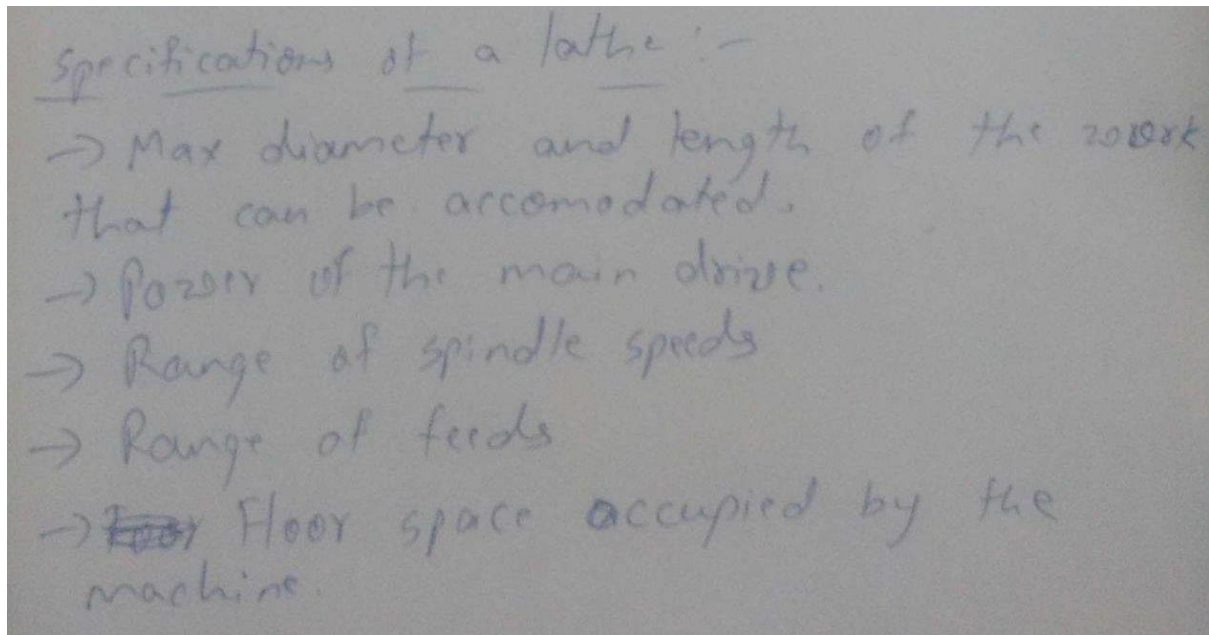 Specifications of a lathe :-
→ Max diameter and length of the work
that can be accomodated.
→ Power of the main drive.
→ Range of spindle speeds
→ Range of feeds
→ Floor space accupied by the
machine.